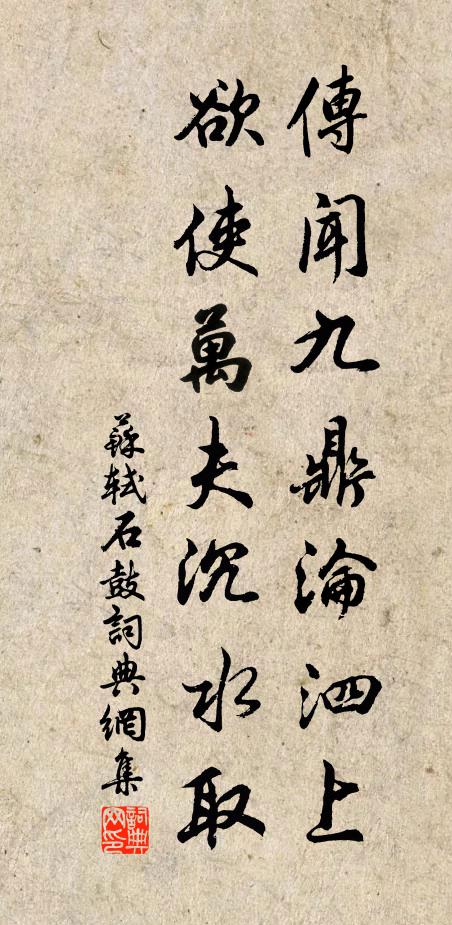 傳聞九鼎淪泗上
欲使萬夫沉水取
蘇軾石鼓詞典網集
詞典网印